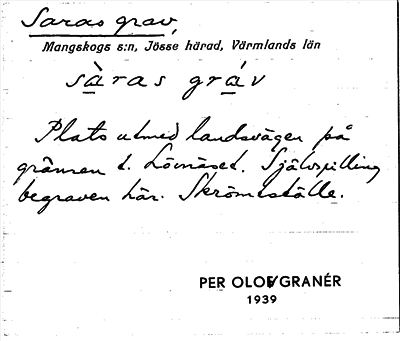 Saras grav,
Mangskogs s:n, Jösse härad, Värmlands län
sàras gráv
Plats utmed landsvägen på
gränsen t. Lövnäset. Självspilling
begraven här. Skrömtställe.
PER OLOF GRANÉR
1939